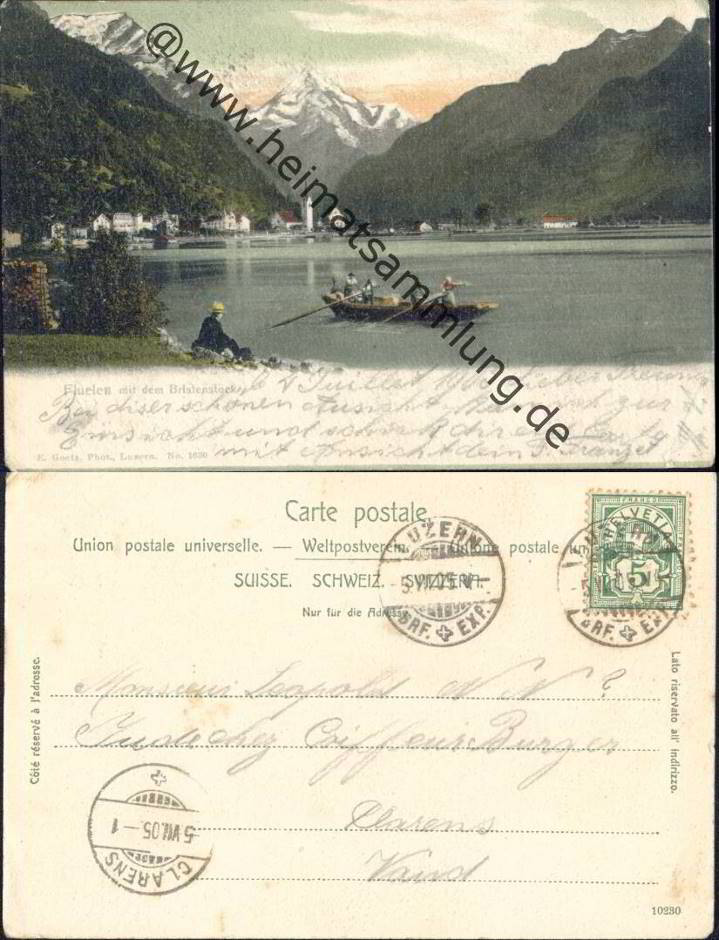 @www.heimatsammlung.de
Fluelen mit dem Bristenstock
4 Juillet 1905 lieber Freund
Bey diser schönen Aussicht
Einsicht und schick dir
mit Ansicht dein
E. Goetz, Phot., Luzern. No. 1630
Carte postale.
Union postale universelle. — Weltpostverein. — Unione postale un
SUISSE. SCHWEIZ. SVIZZERA.
Nur für die Adresse
LUZERN
5.VII.05
BRF. EXP.
FRANCO
HELVETIA
5
LUZERN
BRF. EXP.
Côté réservé à l'adresse.
Lato riservato all' indirizzo.
Monsieur Leopold N N ?
chez Coiffeur Burger
Clarens
Vaud
CLARENS
5 VII.05-1
10230